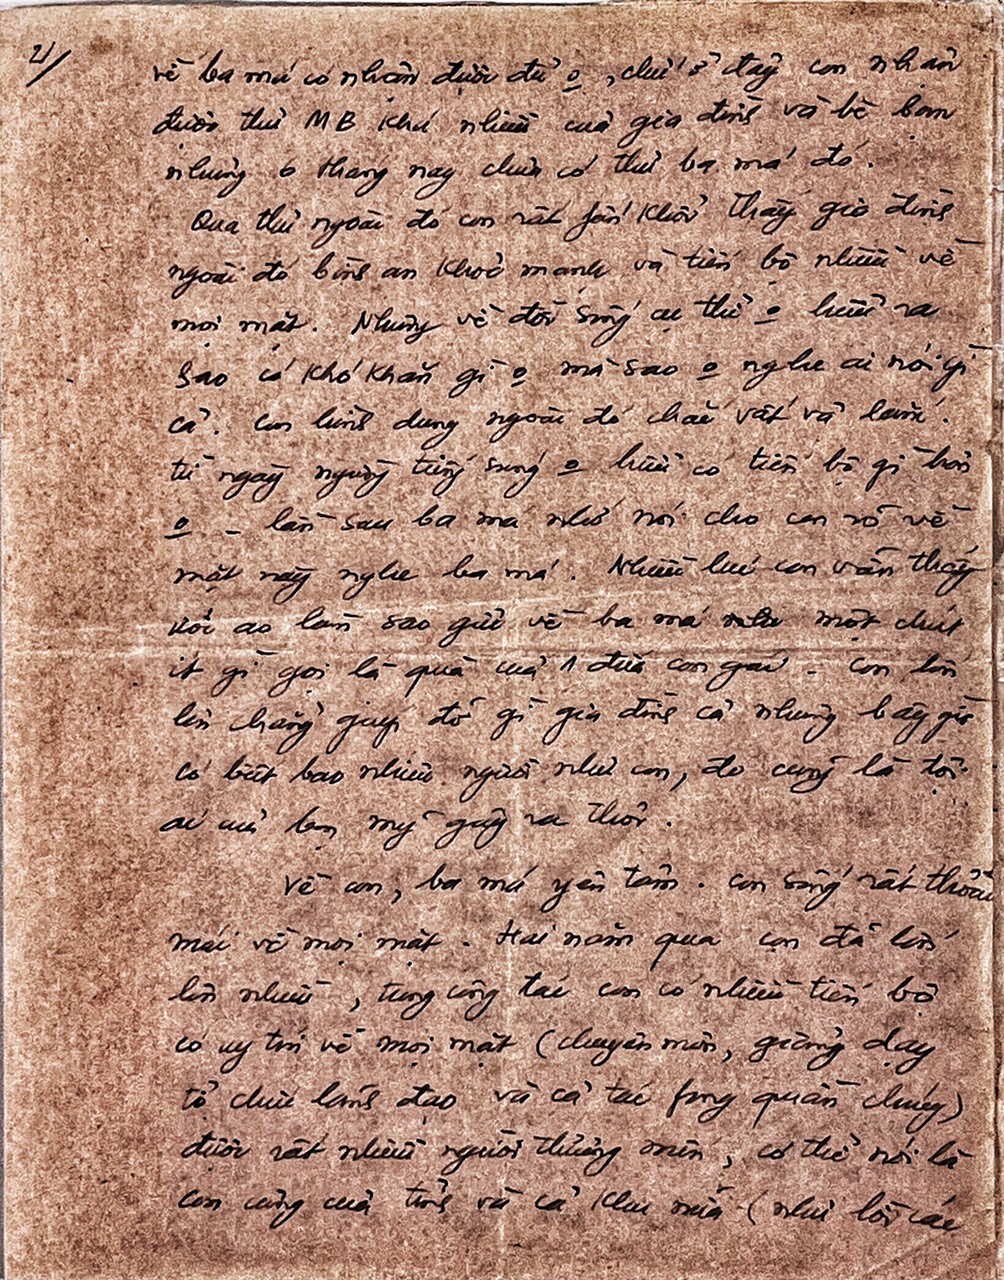 2/
về ba má có nhận được đủ o, chứ ở đây con nhận
được thư MB khá nhiều của gia đình và bè bạn
nhưng 6 tháng nay chưa có thư ba má đó.
Qua thư ngoài đó con rất fấn khởi thấy gia đình
ngoài đó bình an khoẻ mạnh và tiến bộ nhiều về
mọi mặt. Nhưng về đời sống cụ thể o hiểu ra
sao có khó khăn gì o mà sao o nghe ai nói gì
cả. Con hình dung ngoài đó chắc vất vả lắm.
từ ngày ngừng tiếng súng o hiểu có tiến bộ gì hơn
o - lần sau ba má nhớ nói cho con rõ về
mặt này nghe ba má. Nhiều lúc con vẫn thấy
ước ao làm sao gửi về ba má một chút
ít gì gọi là quà của 1 đứa con gái - con lớn
lên chẳng giúp đỡ gì gia đình cả nhưng bây giờ
có biết bao nhiêu người như con, đó cũng là tội
ác của bọn mỹ gây ra thôi.
Về con, ba má yên tâm. con sống rất thoải
mái về mọi mặt. Hai năm qua con đã lớn
lên nhiều, trong công tác con có nhiều tiến bộ
có uy tín về mọi mặt (chuyên môn, giảng dạy
tổ chức lãnh đạo và cả tác fong quần chúng)
được rất nhiều người thương mến, có thể nói là
con cưng của tỉnh và cả khu nữa (như lời các